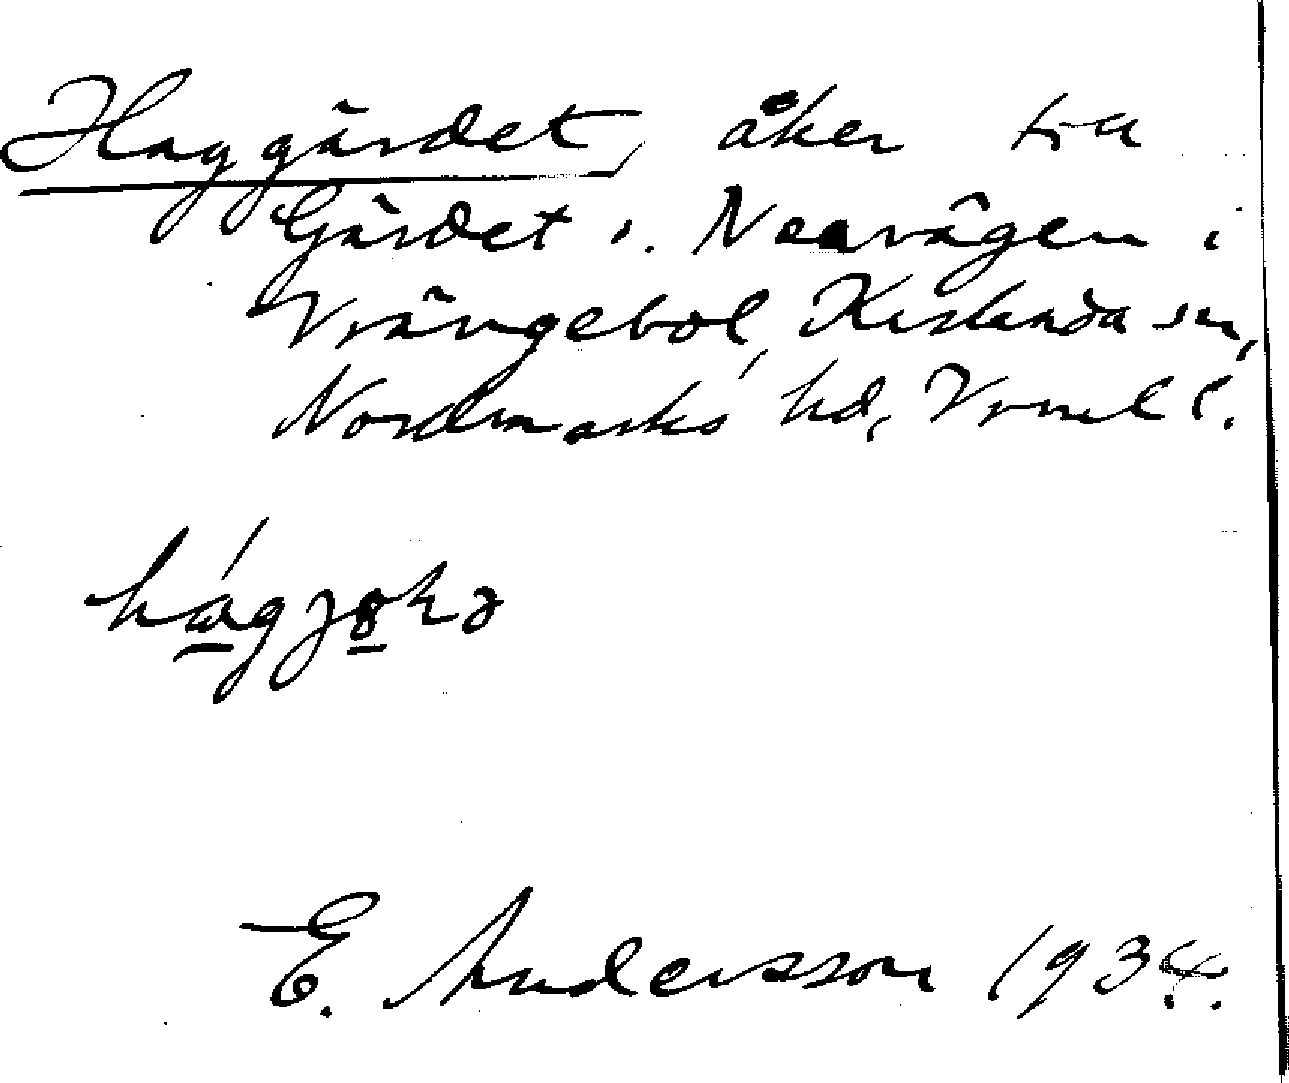 Haggärdet, åker tra
Gärdet s. Neavägen i
Vrängebol, Karlanda sn,
Nordmarks hd, Vrml l.
E. Andersson 1934.